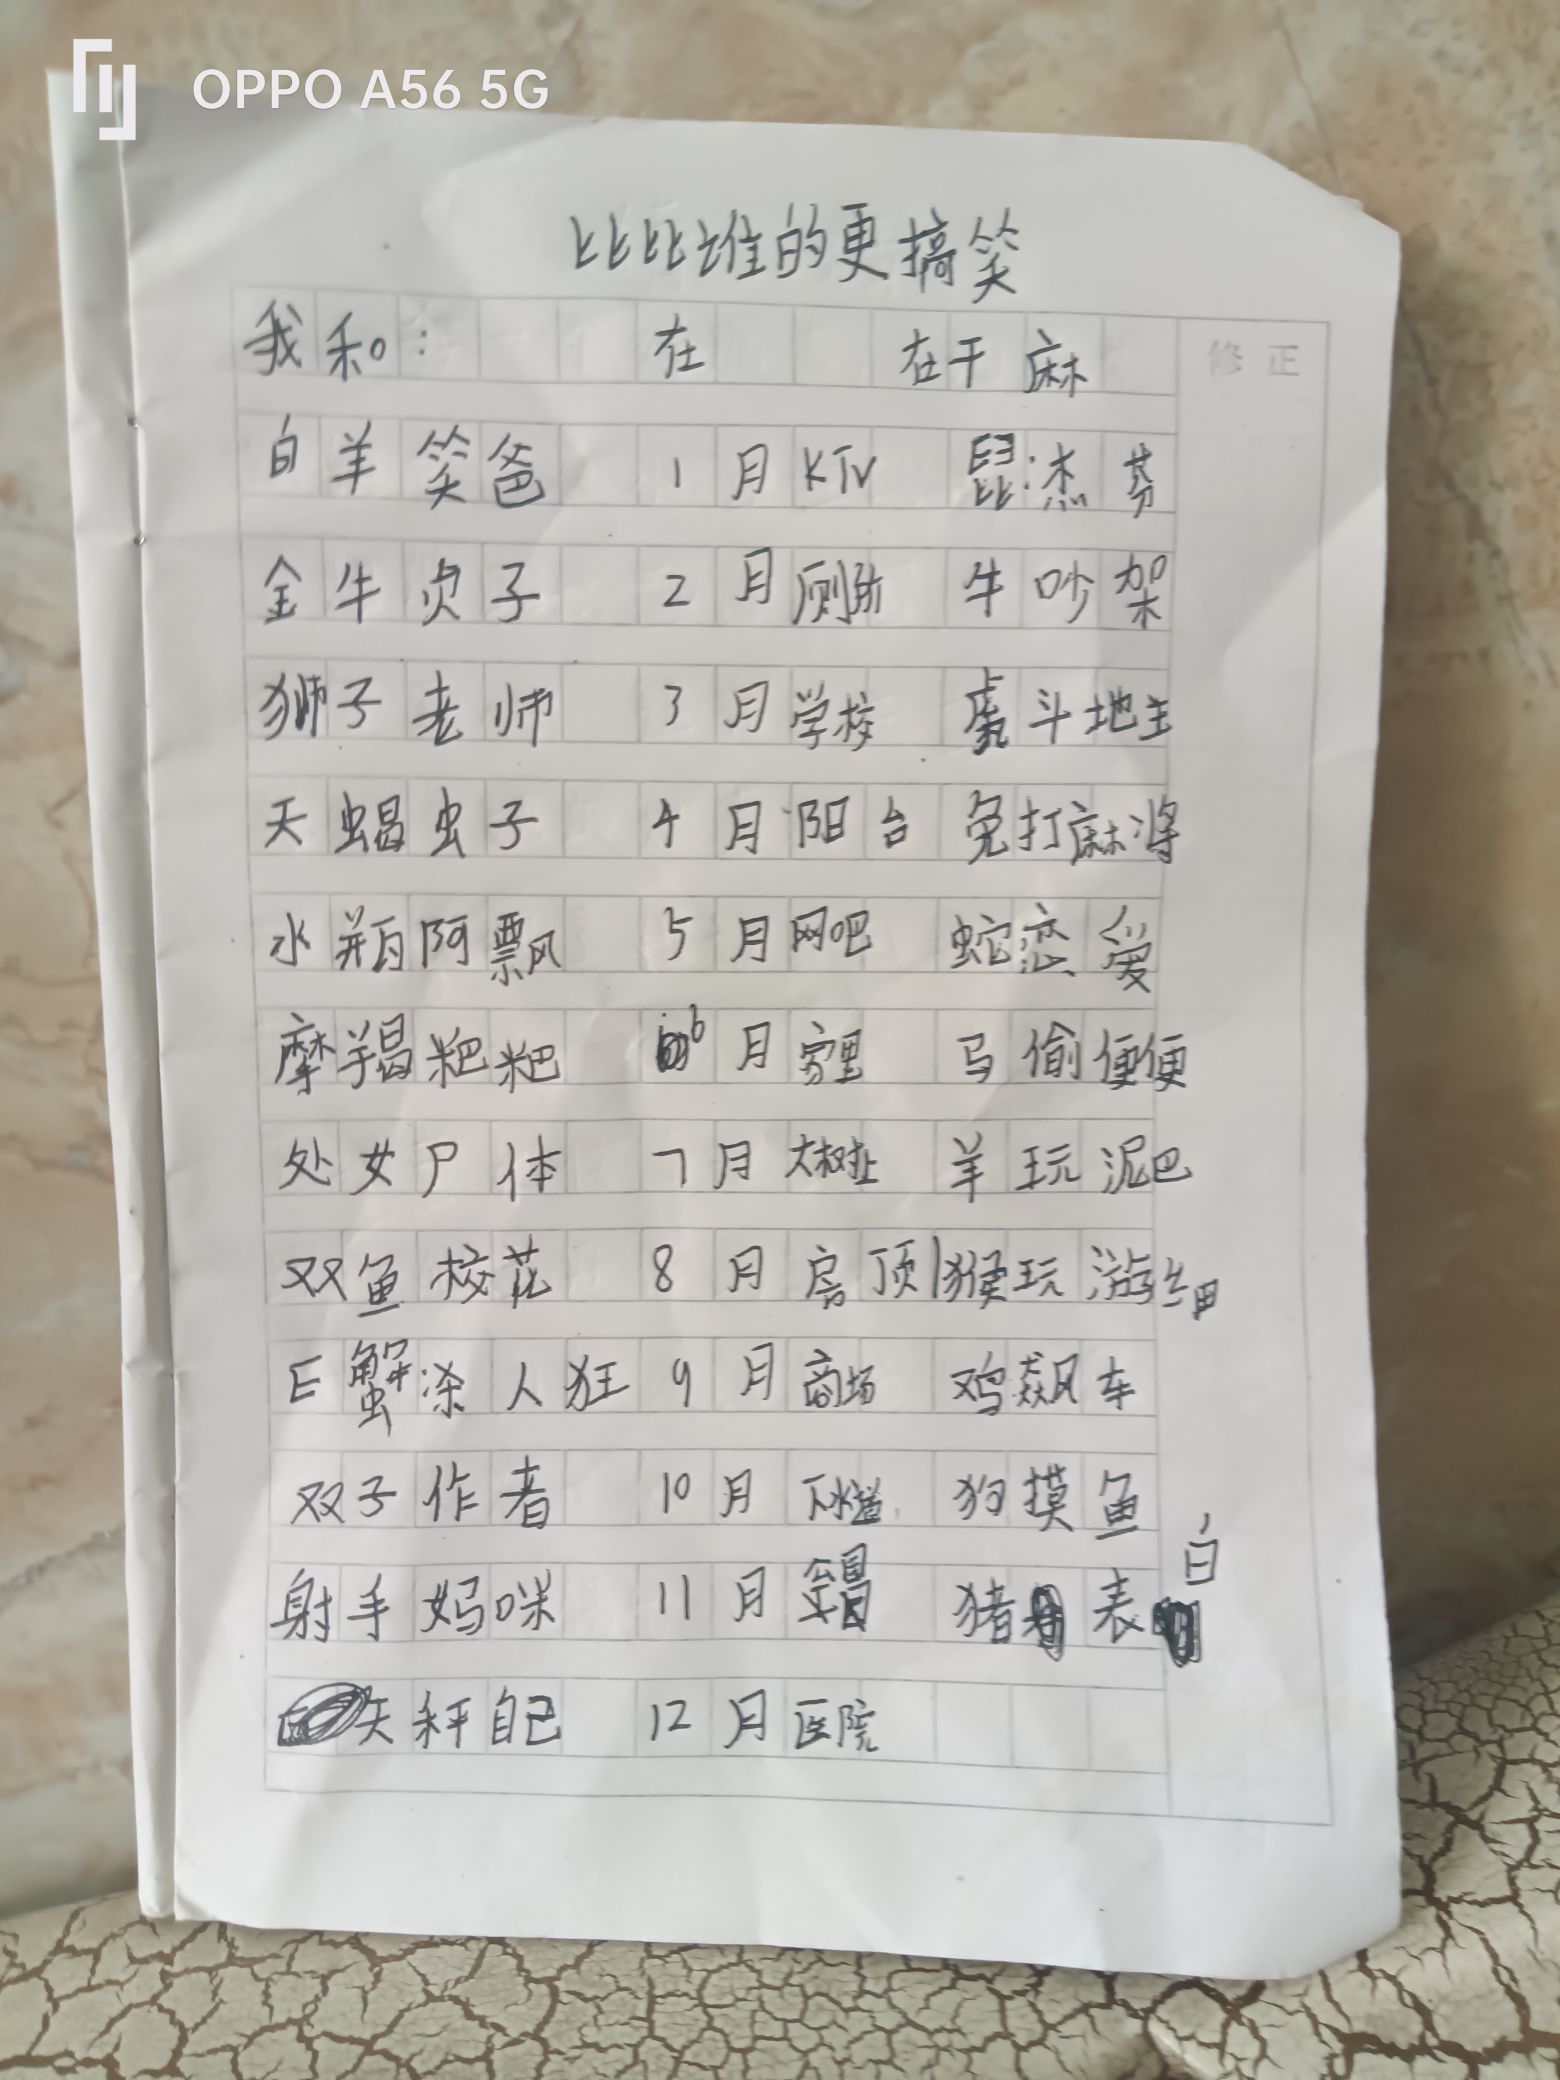 OPPO A56 5G
比比谁的更搞笑
我和: 在 在干麻
修 正
白羊笑爸 1月 KTV 鼠:杰 芬
金牛贞子 2月 厕所 牛吵架
狮子老师 3月 学校 虎斗地主
天蝎虫子 4月 阳台 兔打麻将
水瓶阿飘 5月 网吧 蛇恋爱
摩羯粑粑 6月 家里 马偷便便
处女尸体 7月 大树上 羊玩泥巴
双鱼校花 8月 房顶 猴玩游细
巨蟹杀人狂 9月 商场 鸡飙车
双子作者 10月 下水道 狗摸鱼
射手妈咪 11月 猪 表白
天秤自己 12月 医院